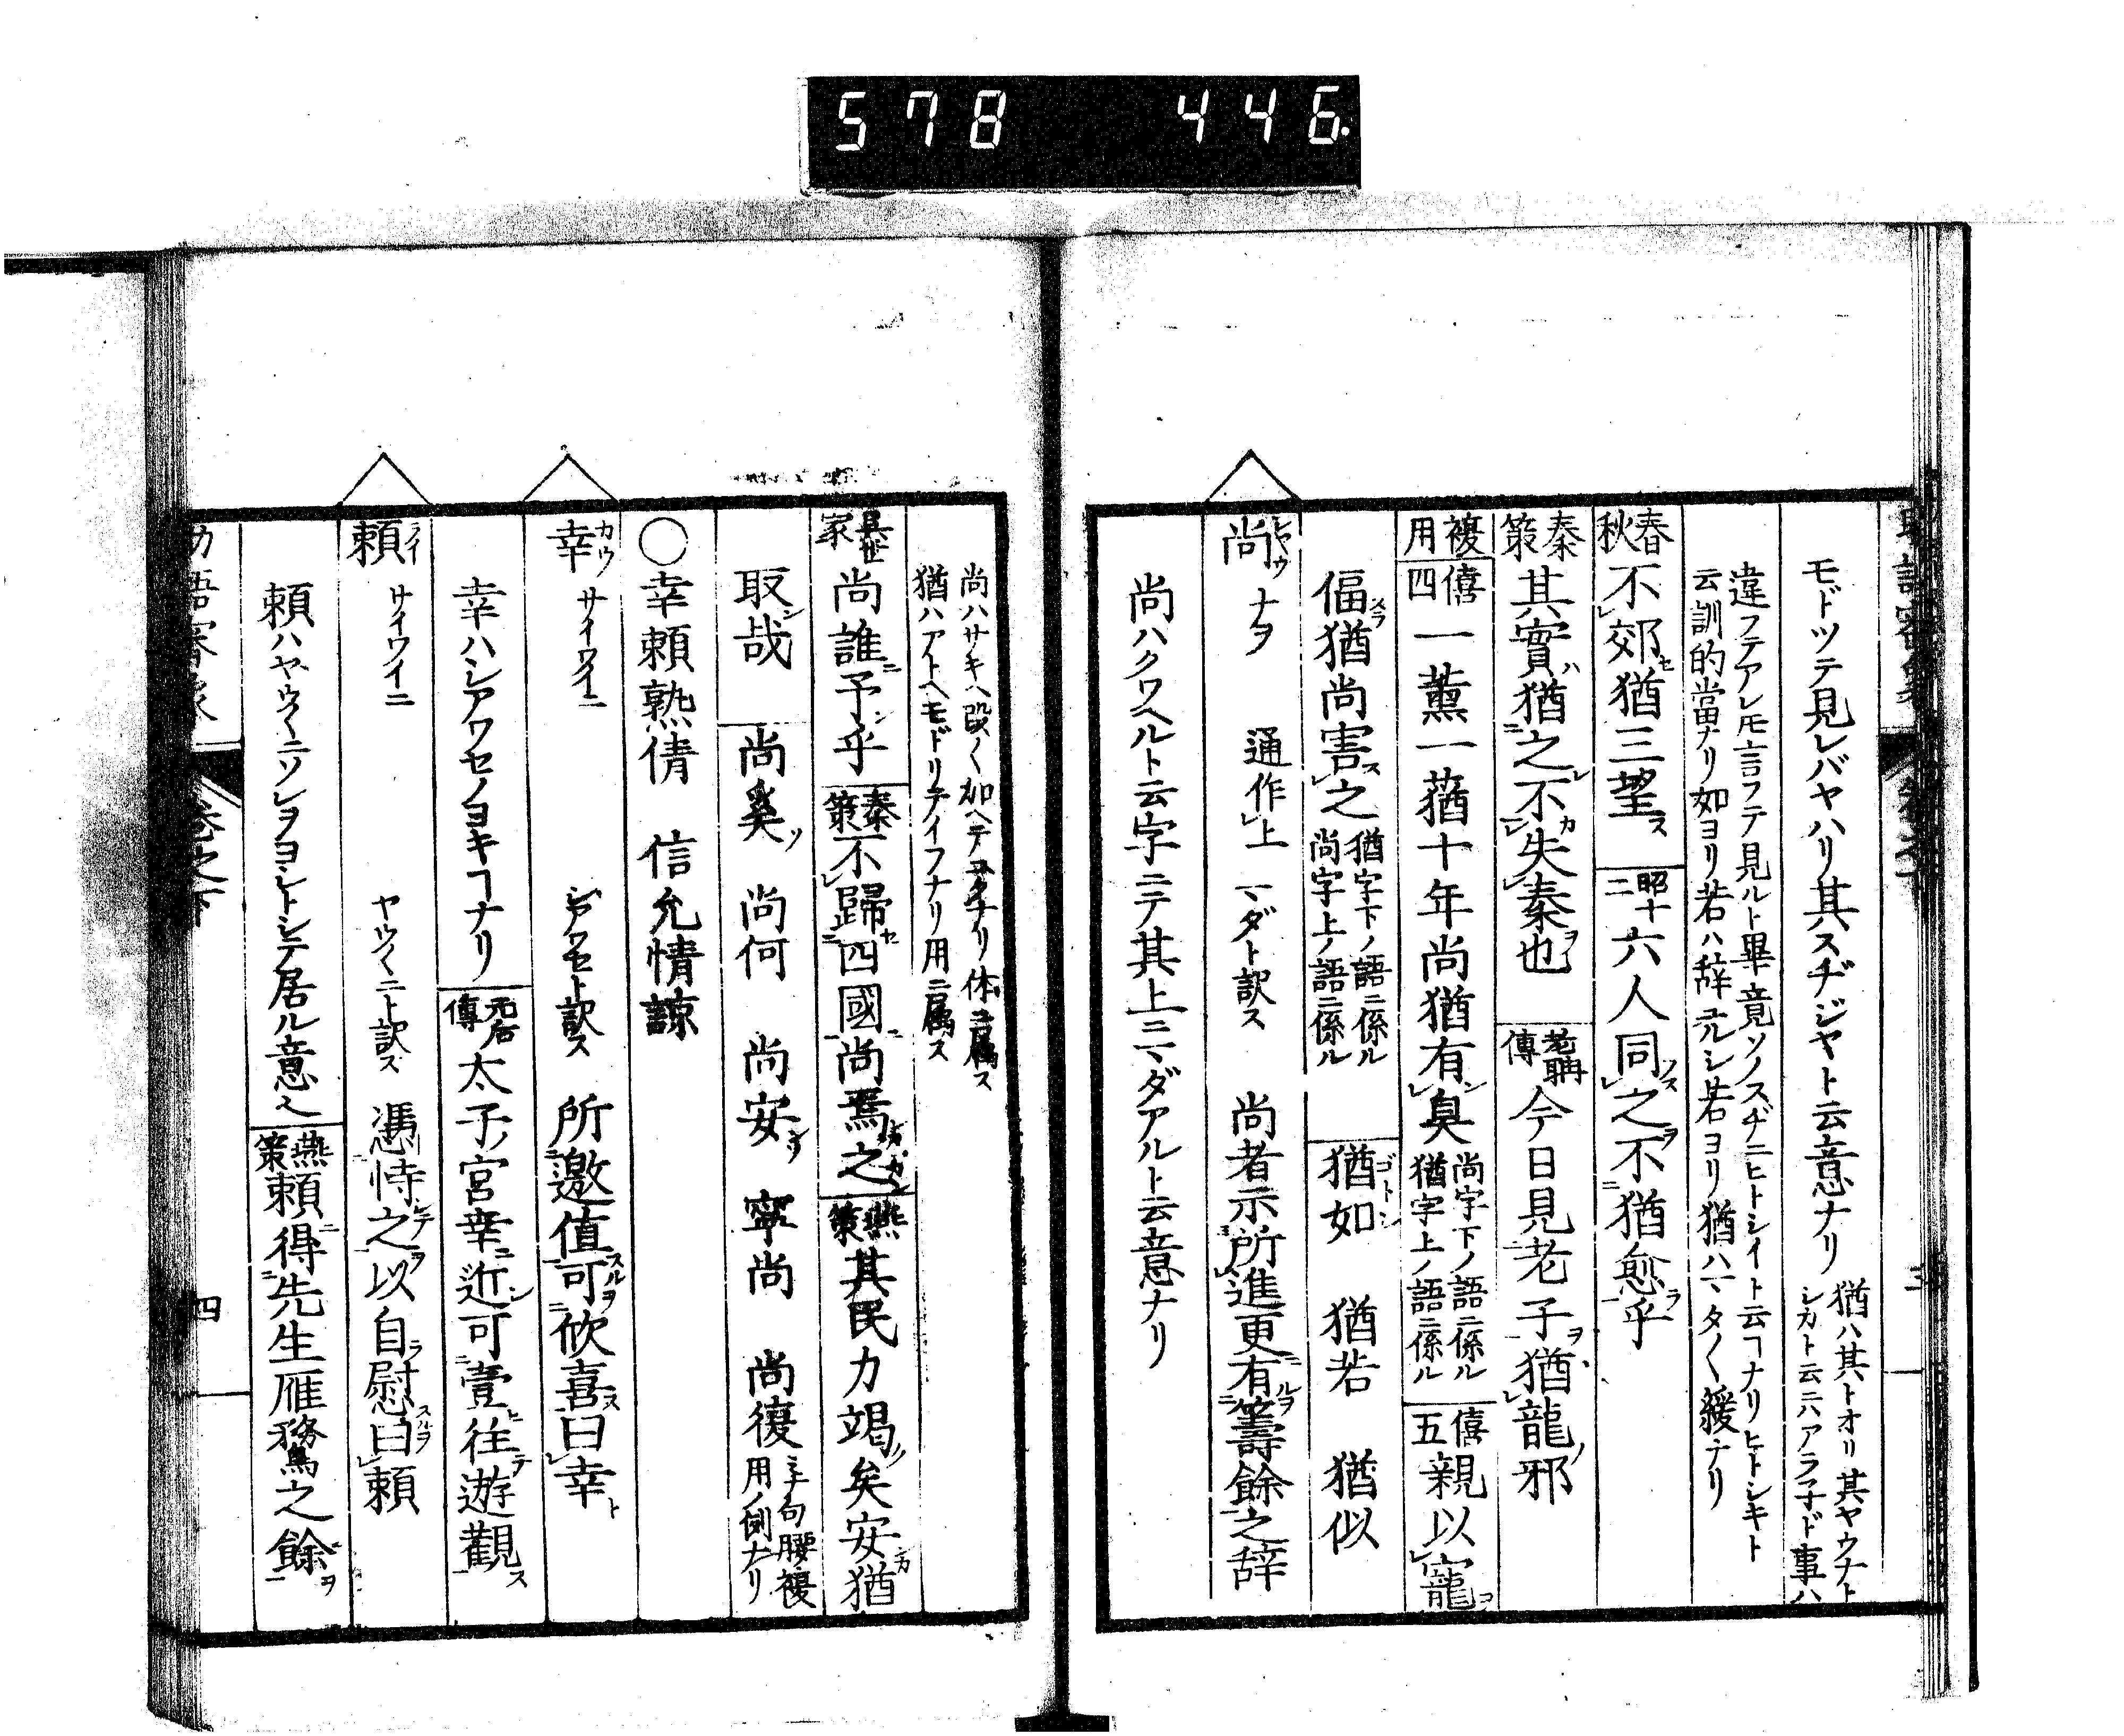 578 446.
モドツテ見レバヤハリ其スヂジヤト云意ナリ
猶ハ其トオリ其ヤウナト
シカト云ニハアラ子ド事ハ
違フテアレ𪜈言フテ見ルト畢竟ソノスヂニヒトシイト云ヿナリヒトシキト
云訓的當ナリ如ヨリ若ハ辞
若ヨリ猶ハマタ〱緩ナリ
春秋
不レ郊セ猶三望ス
昭十二
六人同レ之ヲ不二猶愈一乎
秦策
其實ハ猶二之不一レ失レ秦ヲ也
老聃傳
今日見二老子一ヲ猶レ龍ノ邪
複用
僖四
一薫一蕕十年尚猶有レ臭
尚字下ノ語ニ係ル
猶字上ノ語ニ係ル
僖五
親以レ寵ヲ
偪スラ猶尚害スレ之
猶字下ノ語ニ係ル
尚字上ノ語ニ係ル
猶如ゴトシ 猶若 猶似
尚シヤウ ナヲ 通作レ上 マダト訳ス 尚者示下所レ進更有二籌餘一之辞
尚ハクワヘルト云字ニテ其上ニマダアルト云意ナリ
尚ハサキヘ段〱加ヘテユクナリ体ニ属ス
猶ハアトヘモドリテイフナリ用ニ属ス
吳世家
尚誰ニ予ン乎
秦策
不レ歸セ四國ニ尚焉之
燕策
其民力竭矣安猶
取ン哉 尚奚ソ 尚何 尚安 寧尚 尚復
ミナ句腰複
用ノ例ナリ
〇幸頼熟倩 信允情諒
幸カウ サイワイニ シアワセト訳ス 所三邀値スルヲ可二欣喜一ス曰レ幸ト
幸ハシアワセノヨキヿナリ
太子ノ宮幸ニ近シ可二壹ヒ往テ遊觀一ス
頼ライ サイワイニ ヤウ〱ニト訳ス 憑二恃シテ之ヲ一以自ラ慰スルヲ曰レ頼
頼ハヤウ〱ニソレヲヨシトシテ居ル意也
燕策
頼ニ得二先生雁鶩之餘一ヲ
巻之下 四